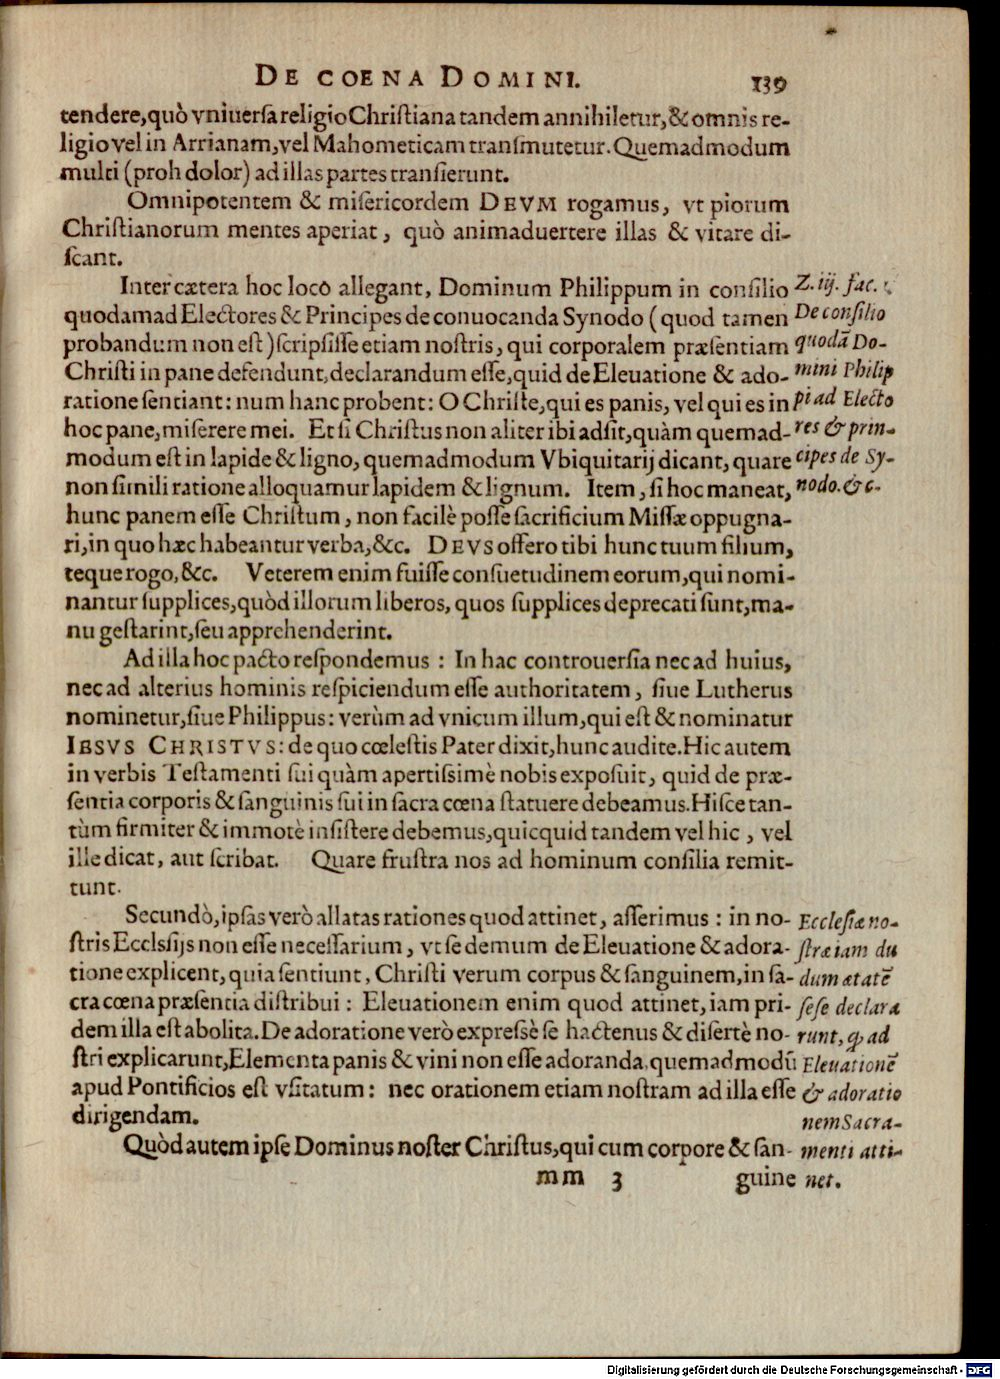 DE COENA DOMINI. 139
tendere, quò vniuersa religio Christiana tandem annihiletur, & omnis re-
ligio vel in Arrianam, vel Mahometicam transmutetur. Quemadmodum
multi (proh dolor) ad illas partes transierunt.
Omnipotentem & misericordem DEVM rogamus, vt piorum
Christianorum mentes aperiat, quò animaduertere illas & vitare di-
scant.
Inter cætera hoc loco allegant, Dominum Philippum in consilio
quodam ad Electores & Principes de conuocanda Synodo (quod tamen
probandum non est) scripsisse etiam nostris, qui corporalem præsentiam
Christi in pane defendunt, declarandum esse, quid de Eleuatione & ado-
ratione sentiant: num hanc probent: O Christe, qui es panis, vel qui es in
hoc pane, miserere mei. Et si Christus non aliter ibi adsit, quàm quemad-
modum est in lapide & ligno, quemadmodum Vbiquitarij dicant, quare
non simili ratione alloquamur lapidem & lignum. Item, si hoc maneat,
hunc panem esse Christum, non facilè posse sacrificium Missæ oppugna-
ri, in quo hæc habeantur verba, &c. DEVS offero tibi hunc tuum filium,
teque rogo, &c. Veterem enim fuisse consuetudinem eorum, qui nomi-
nantur supplices, quòd illorum liberos, quos supplices deprecati sunt, ma-
nu gestarint, seu apprehenderint.
Z. iij. fac.
De consilio
quodã Do-
mini Philip
pi ad Electo
res & prin-
cipes de Sy-
nodo. &c.
Ad illa hoc pacto respondemus: In hac controuersia nec ad huius,
nec ad alterius hominis respiciendum esse authoritatem, siue Lutherus
nominetur, siue Philippus: verùm ad vnicum illum, qui est & nominatur
IESVS CHRISTVS: de quo cœlestis Pater dixit, hunc audite. Hic autem
in verbis Testamenti sui quàm apertissimè nobis exposuit, quid de præ-
sentia corporis & sanguinis sui in sacra cœna statuere debeamus. Hisce tan-
tùm firmiter & immotè insistere debemus, quicquid tandem vel hic, vel
ille dicat, aut scribat. Quare frustra nos ad hominum consilia remit-
tunt.
Secundò, ipsas verò allatas rationes quod attinet, asserimus: in no-
stris Ecclsijs non esse necessarium, vt se demum de Eleuatione & adora-
tione explicent, quia sentiunt, Christi verum corpus & sanguinem, in sa-
cra cœna præsentia distribui: Eleuationem enim quod attinet, iam pri-
dem illa est abolita. De adoratione verò expressè se hactenus & disertè no-
stri explicarunt, Elementa panis & vini non esse adoranda, quemadmodũ
apud Pontificios est vsitatum: nec orationem etiam nostram ad illa esse
dirigendam.
Quòd autem ipse Dominus noster Christus, qui cum corpore & san-
Ecclesiæ no-
stræ iam du
dum ætatẽ
sese declara
runt, ꝙ ad
Eleuationẽ
& adoratio
nem Sacra-
menti atti-
net.
mm 3 guine
Digitalisierung gefördert durch die Deutsche Forschungsgemeinschaft - DFG